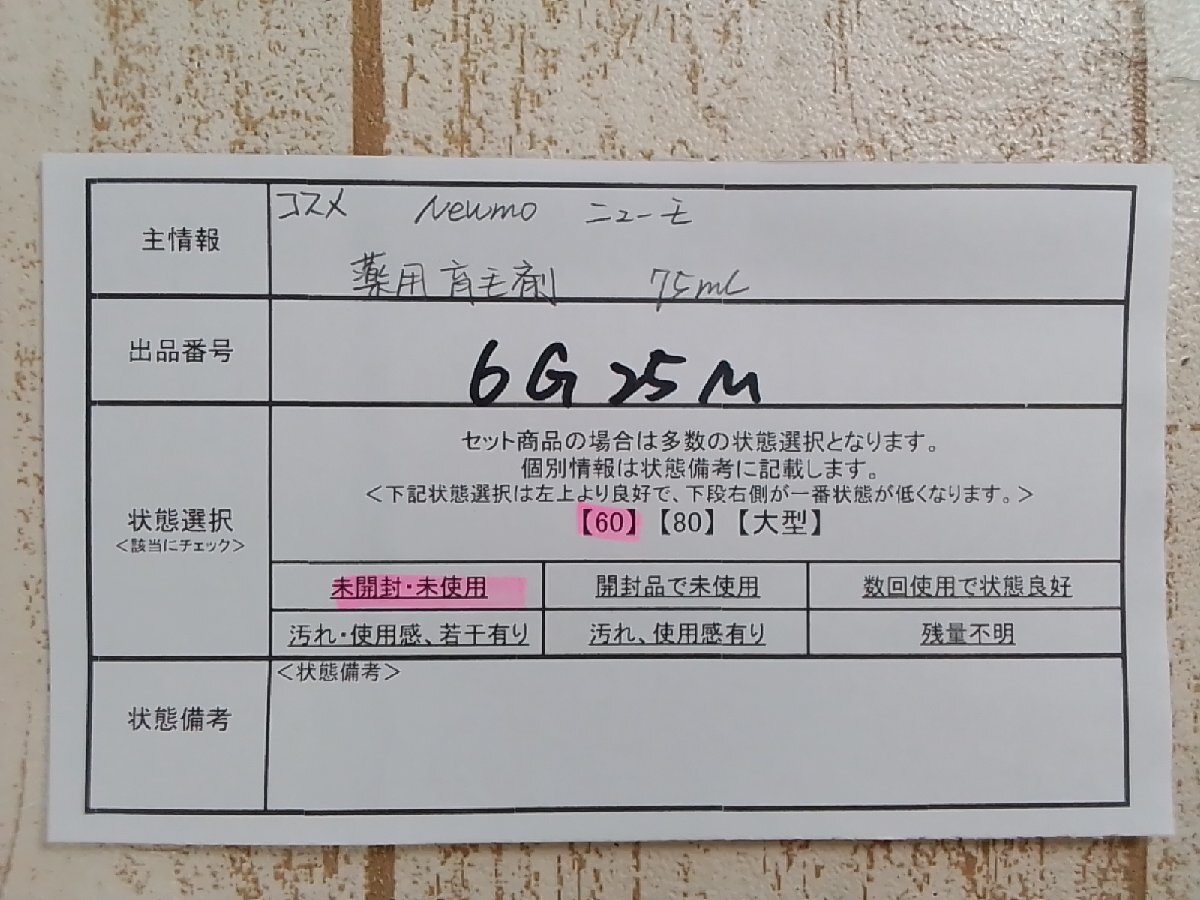 主情報
コスメ Newmo ニューモ
薬用育毛剤 75ml
出品番号
6G25M
状態選択
<該当にチェック>
セット商品の場合は多数の状態選択となります。
個別情報は状態備考に記載します。
<下記状態選択は左上より良好で、下段右側が一番状態が低くなります。>
【60】【80】【大型】
未開封・未使用 開封品で未使用 数回使用で状態良好
汚れ・使用感、若干有り 汚れ、使用感有り 残量不明
状態備考
<状態備考>